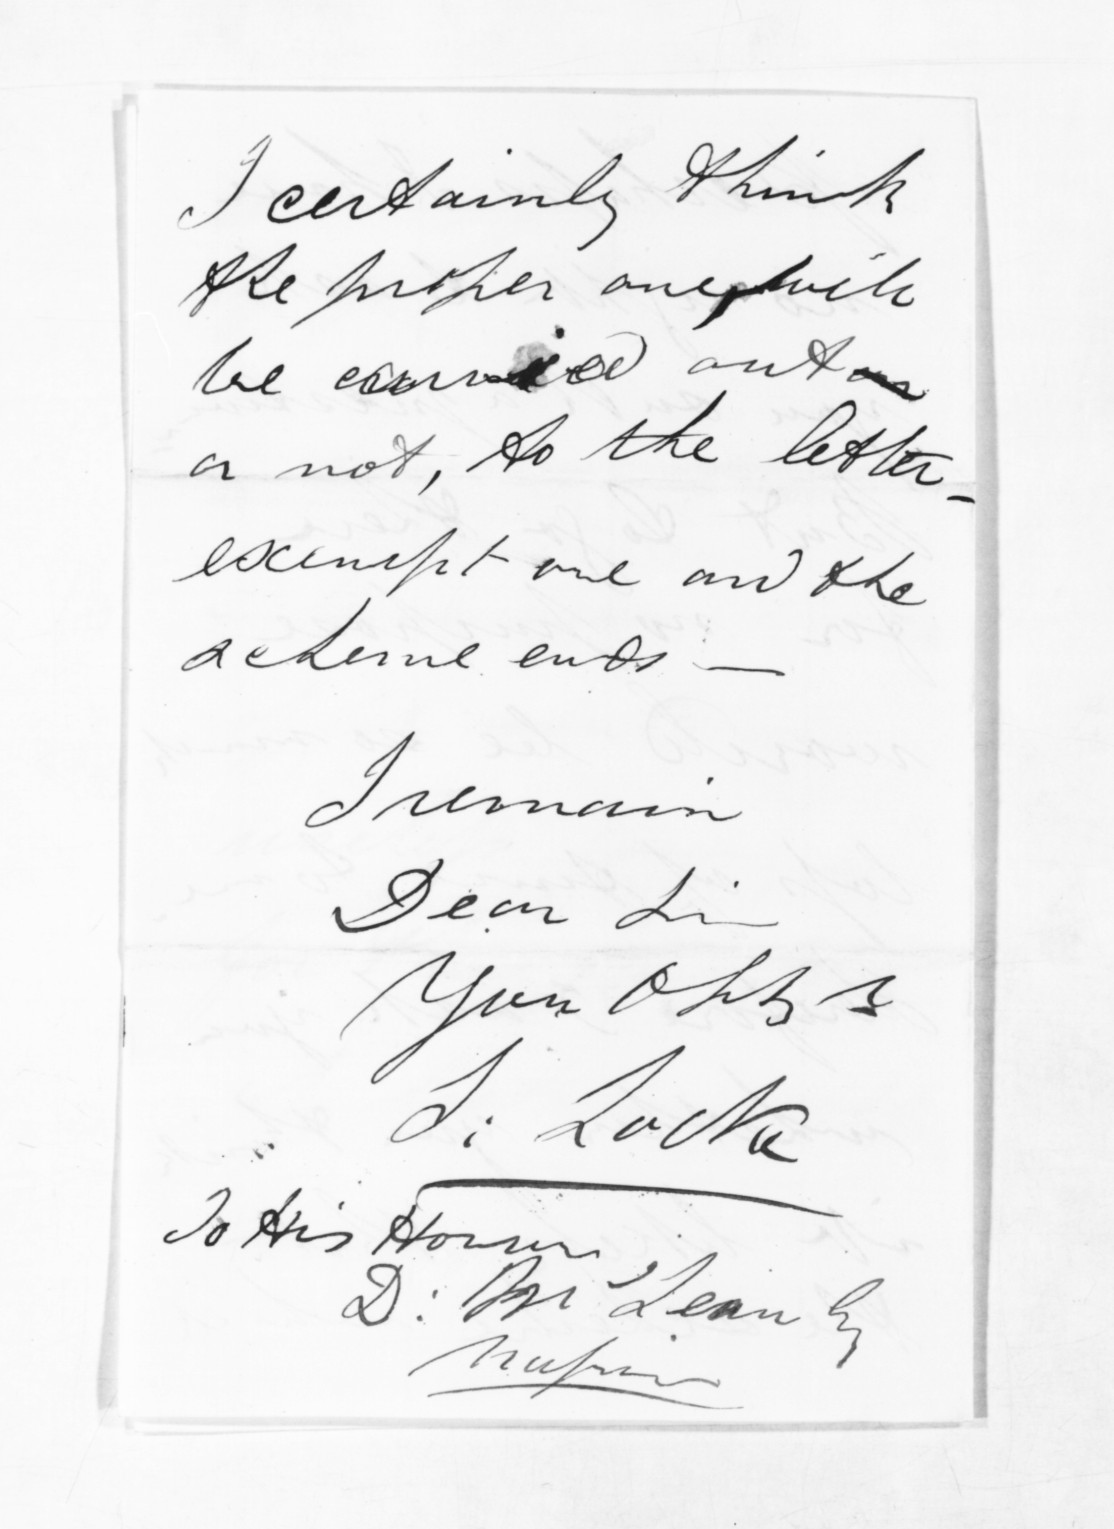 I certainly think
the proper one, will
be carried out
or not, to the letter -
excempt one and the
scheme ends —
I remain
Dear Sir
Your Obt Sv
S: Locke
To His Honour
D: McLean Esq
Napier